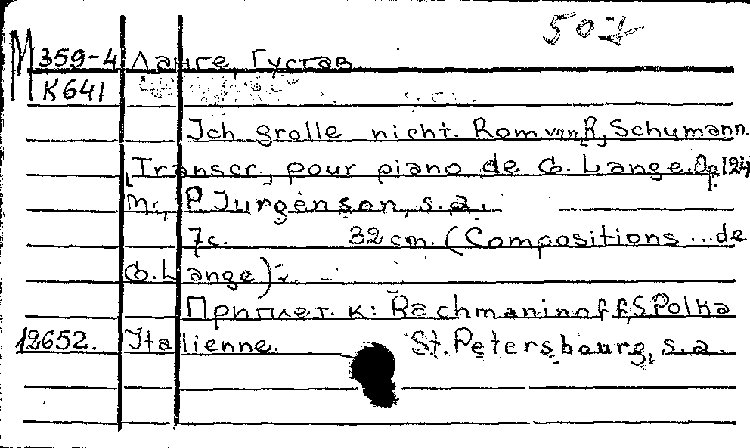 507
М 359-4 Ланге, Густав
К641
Ich grolle nicht. Rom von R. Schumann.
Transcr. pour piano de G. Lange. Op 124
M., P. Jurgenson, s.a.
7c. 32 cm. (Compositions ... de
G. Lange).
Приплет. к: Rachmaninoff, S. Polka
12652. Italienne. St. Petersbourg, s.a.